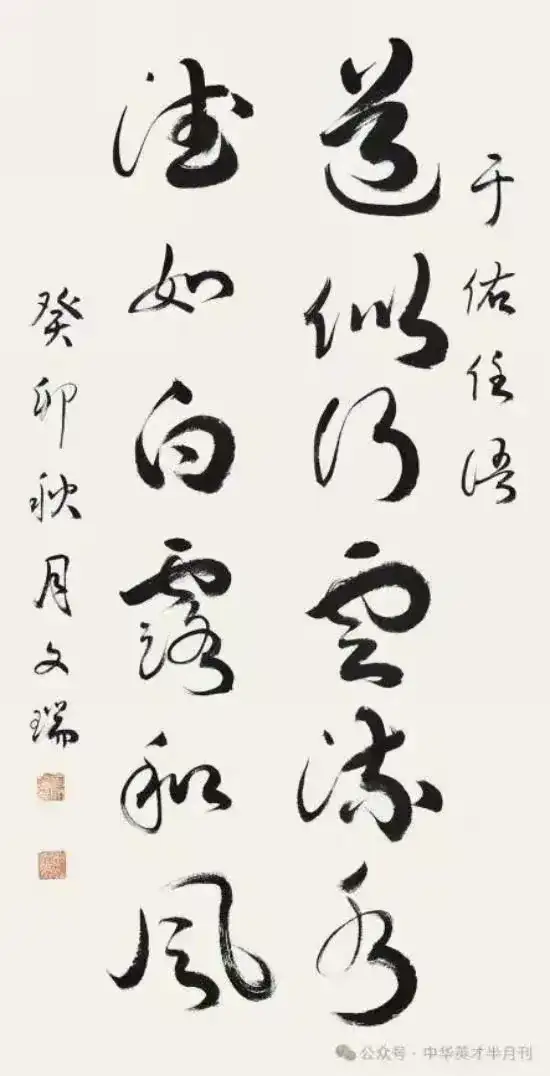 于佑任语
道似行云流水
德如白露和风
癸卯秋月文瑞
公众号·中华英才半月刊